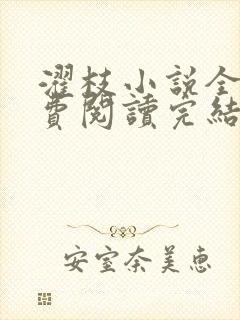 濯枝小説全
費閱讀完結
安室奈美惠